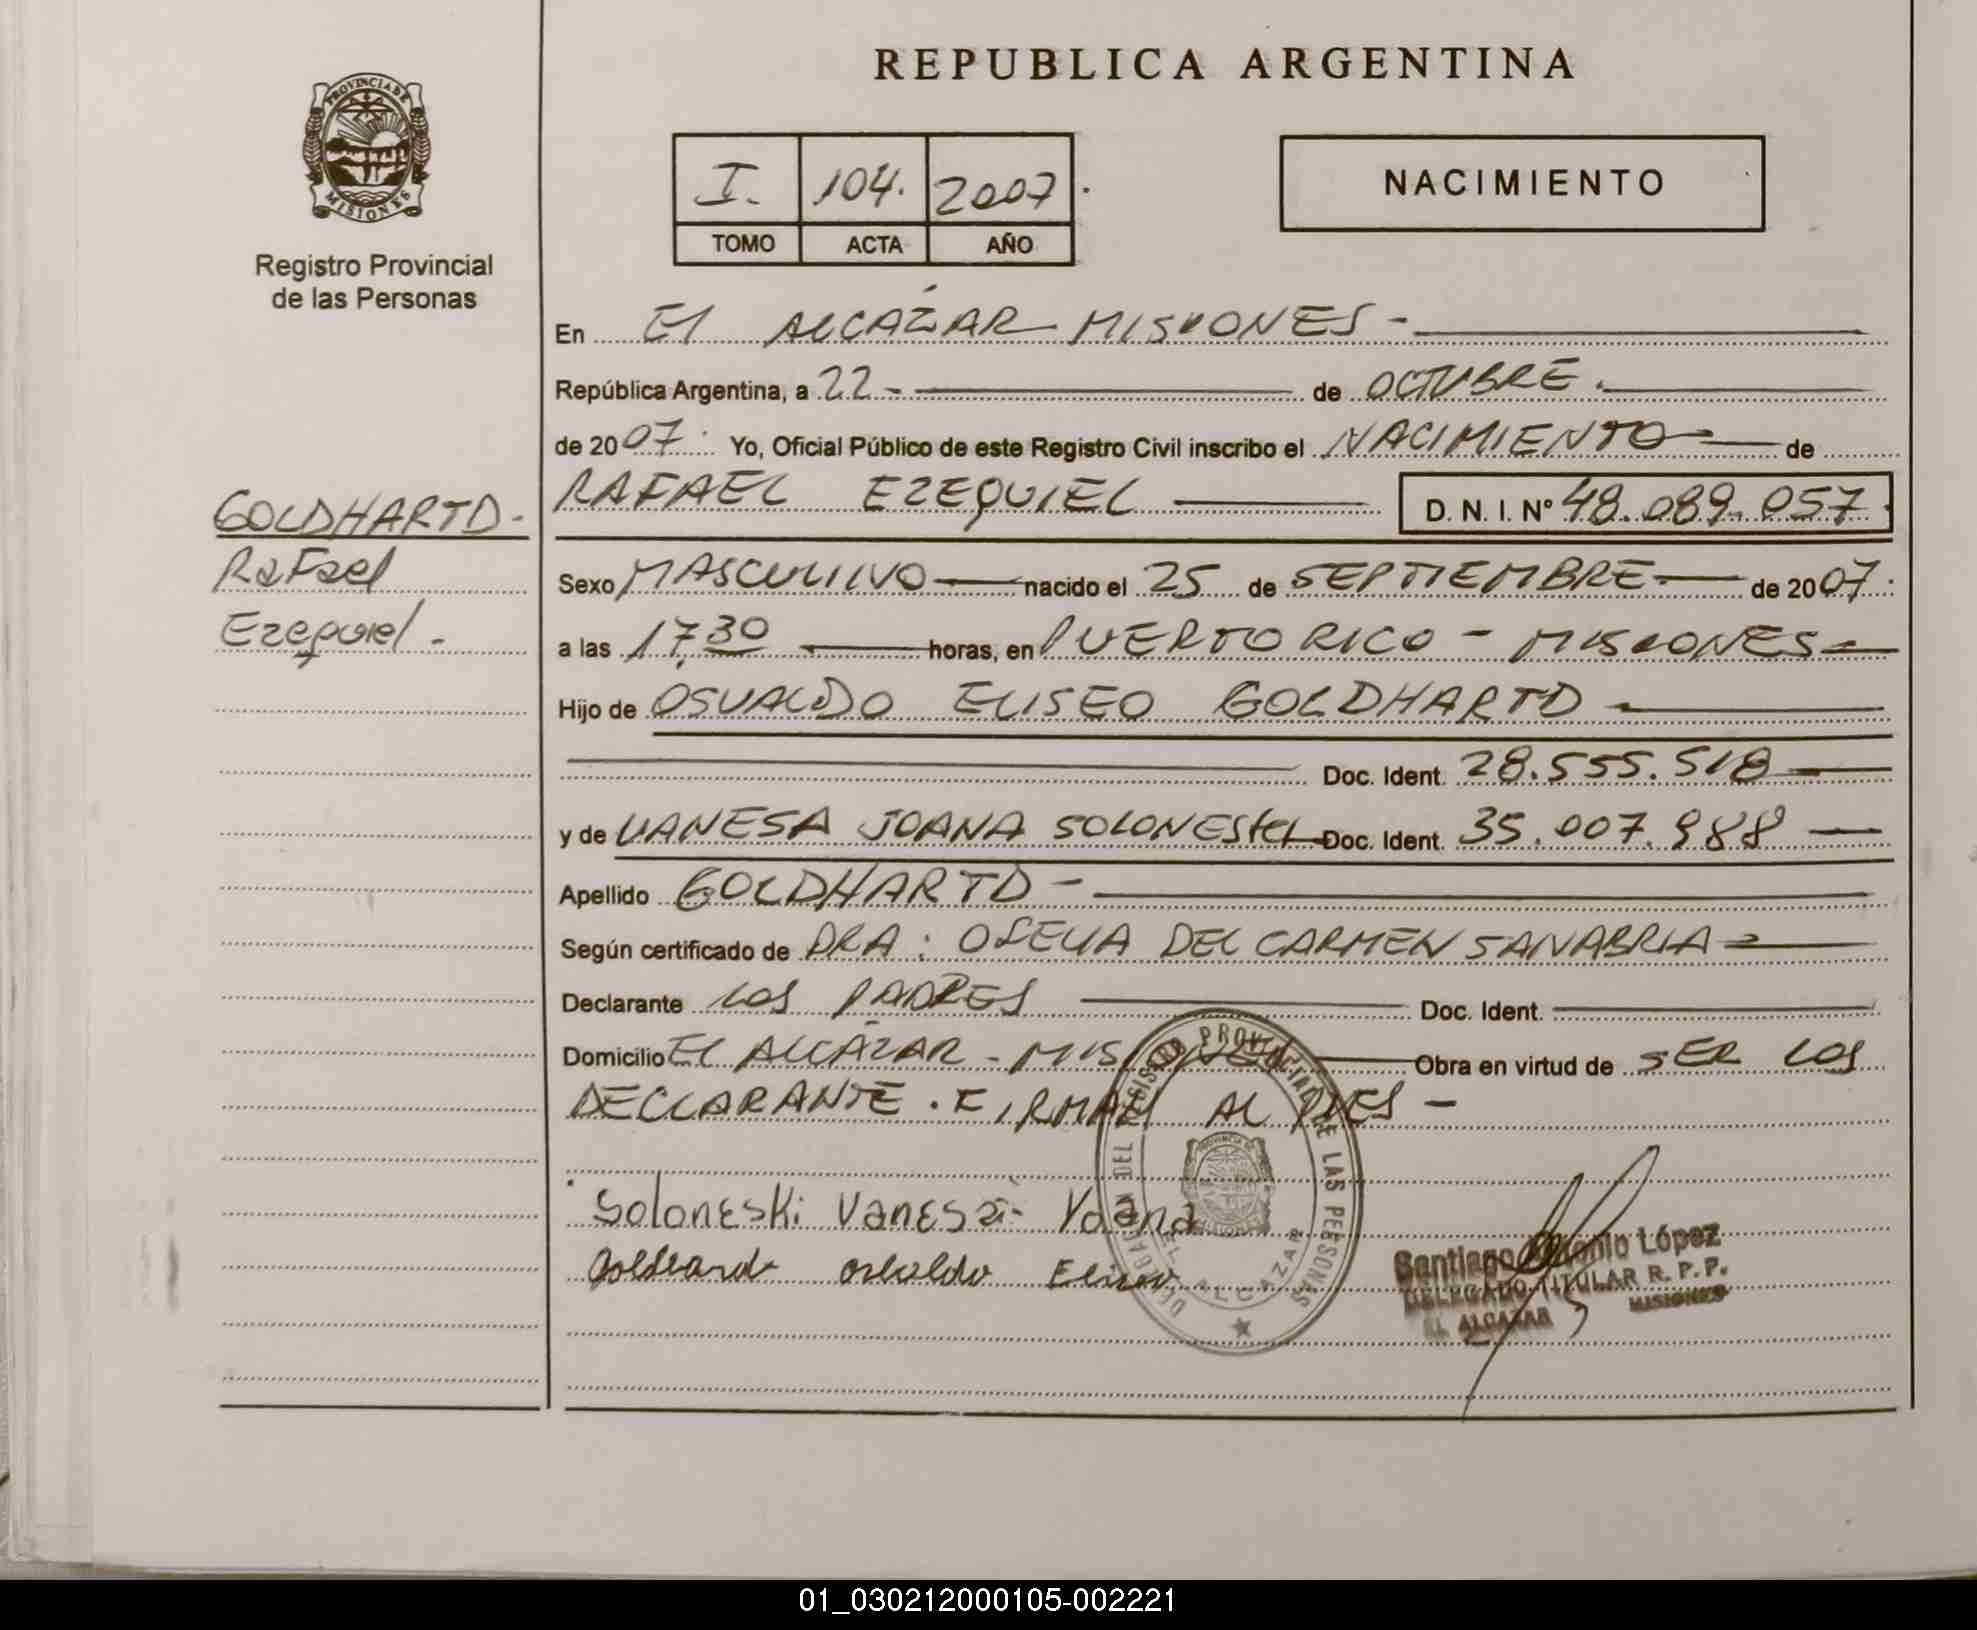 REPUBLICA ARGENTINA
PROVINCIA DE
MISIONES
Registro Provincial
de las Personas
I. 104. 2007.
TOMO ACTA AÑO
NACIMIENTO
En El ALCÁZAR MISIONES -
República Argentina, a 22 - de OCTUBRE.
de 2007. Yo, Oficial Público de este Registro Civil inscribo el NACIMIENTO de
RAFAEL EZEQUIEL D. N. I. Nº 48.089.057.
GOLDHARTD -
Rafael
Ezequiel -
Sexo MASCULINO nacido el 25 de SEPTIEMBRE de 2007.
a las 17,30 horas, en PUERTO RICO - MISIONES
Hijo de OSVALDO ELISEO GOLDHARTD
Doc. Ident. 28.555.518
y de VANESA JOANA SOLONESKI Doc. Ident. 35.007.988
Apellido GOLDHARTD -
Según certificado de DRA: OFELIA DEL CARMEN SANABRIA
Declarante LOS PADRES Doc. Ident.
Domicilio El ALCÁZAR - MISIONES Obra en virtud de SER LOS
DECLARANTE. FIRMAN AL PIES -
Soloneski Vanesa Yoana
Osvaldo Eliseo
DELEGACION DEL REGISTRO PROVINCIAL DE LAS PERSONAS
EL ALCAZAR
Santiago Antonio López
DELEGADO TITULAR R. P. P.
AL ALCAZAR MISIONES
01_030212000105-002221